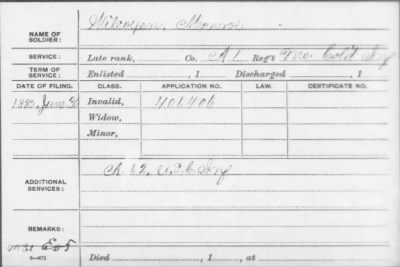 NAME OF SOLDIER:
SERVICE: Late rank, Co. A 1 Reg't Mo. Col'd Inf
TERM OF SERVICE: Enlisted , 1 Discharged , 1
DATE OF FILING. CLASS. APPLICATION NO. LAW. CERTIFICATE NO.
1880, June 30 Invalid, 401406
Widow,
Minor,
ADDITIONAL SERVICES: A 62, U.S.C. Inf
REMARKS:
Died , 1 , at